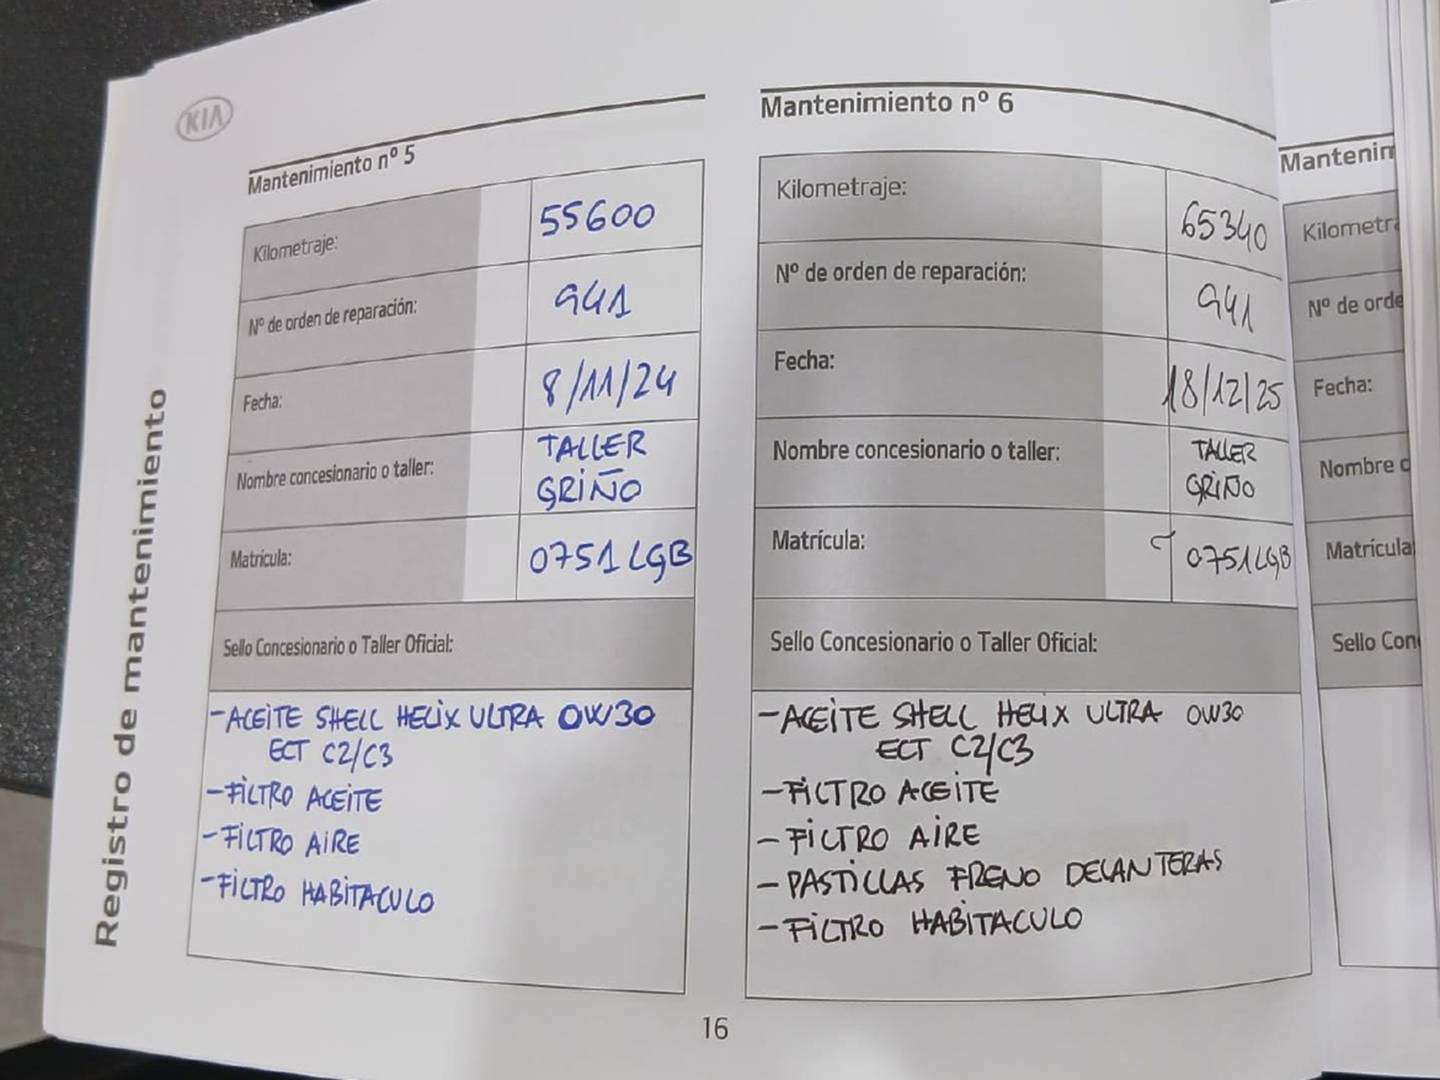 KIA
Registro de mantenimiento
Mantenimiento nº 5
Kilometraje: 55600
Nº de orden de reparación: 941
Fecha: 8/11/24
Nombre concesionario o taller: TALLER
GRIÑO
Matrícula: 0751LGB
Sello Concesionario o Taller Oficial:
-ACEITE SHELL HELIX ULTRA 0W30
ECT C2/C3
-FILTRO ACEITE
-FILTRO AIRE
-FILTRO HABITACULO
Mantenimiento nº 6
Kilometraje: 65340
Nº de orden de reparación: 941
Fecha: 18/12/25
Nombre concesionario o taller: TALLER
GRIÑO
Matrícula: 0751LGB
Sello Concesionario o Taller Oficial:
-ACEITE SHELL HELIX ULTRA 0W30
ECT C2/C3
-FILTRO ACEITE
-FILTRO AIRE
-PASTILLAS FRENO DELANTERAS
-FILTRO HABITACULO
16
Mantenim
Kilometra
Nº de orde
Fecha:
Nombre c
Matrícula
Sello Con